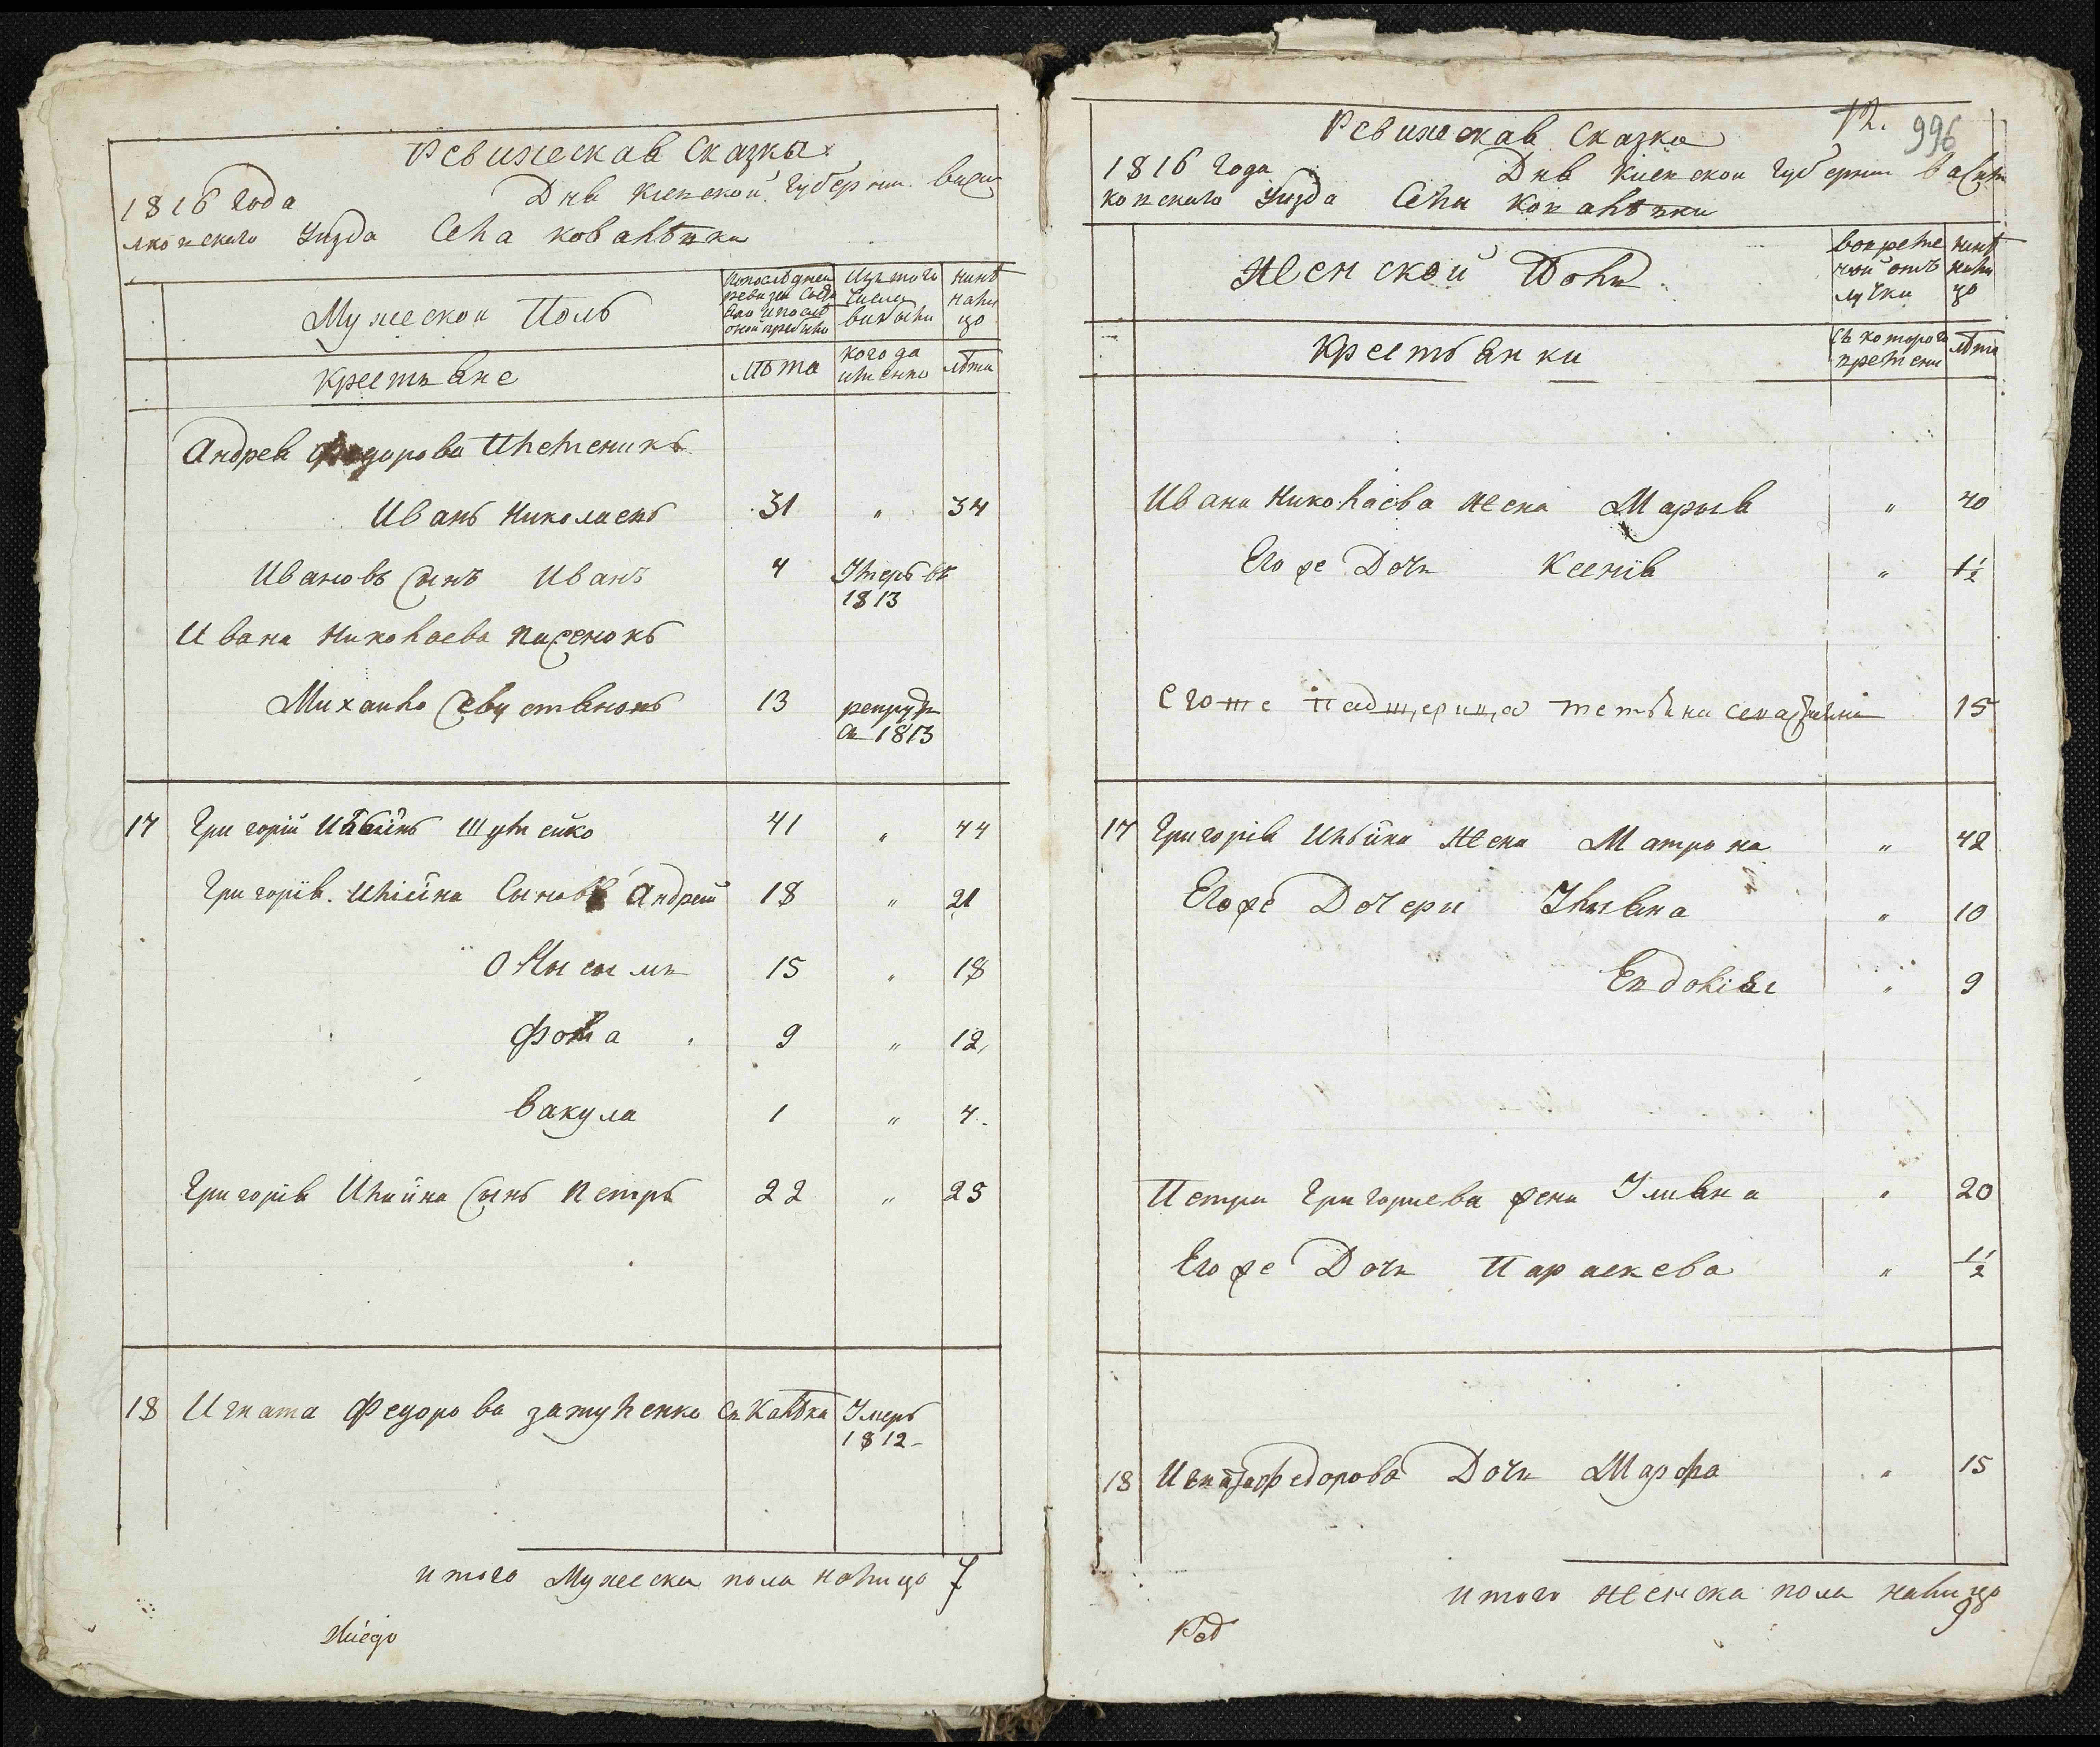 Ревижская Сказка
1816 года Дня Киевской губернии васил
яковскаго уизда Села ковалѣвки
Мужеской Полъ
Попослѣдней ревизіи состо
яло и послѣ
оной прибыло
Изъ того
числа
выбыло
Нинѣ
нали
цо
Крестьяне
лѣта
когода
именно
лѣта
Андрея Федорова племеникъ
Иванъ Николаевъ 31 " 34
Ивановъ Сынъ Иванъ 4 Умеръ въ
1813
Ивана Николаева пасенокъ
Михаило Севустьяновъ 13 рекрут
въ 1813
17 Григорий Ильинъ Шулейко 41 " 44
Григорія Иліина Сыновья Андрей 18 " 21
Онысымъ 15 " 18
Фома 9 " 12
Вакула 1 " 4
Григорія Ильина Сынъ Петръ 22 " 25
18 Игната Федорова Умеръ
1812
итого мужеска пола налицо 7
12. 996
Ревижская Сказка
1816 Года Дня Киевской губернии васил
ковскаго уизда Села ковалѣвки
Женской Полъ
вовреме
ной отъ
лучки
нинѣ
нали
цо
Крестьянки
съ которого
времени
лѣта
Ивана Николаева жена Марыя " 40
Его же Дочь Ксенія " 1½
Егоже падщерица тетьяна 15
17 Григорія Ильина Жена Матрона " 42
Егоже Дочери Ульяна " 10
Евдокія " 9
Петра Григориева жена Ульяна " 20
Его же Дочь Параскева " 1½
18 Игната Федорова Дочь Марфа " 15
итого женска пола налицо 9